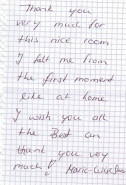 Thank you
very much for
this nice room
I felt me from
the first moment
like at home
I wish you all
the Best an
thank you vey
much!